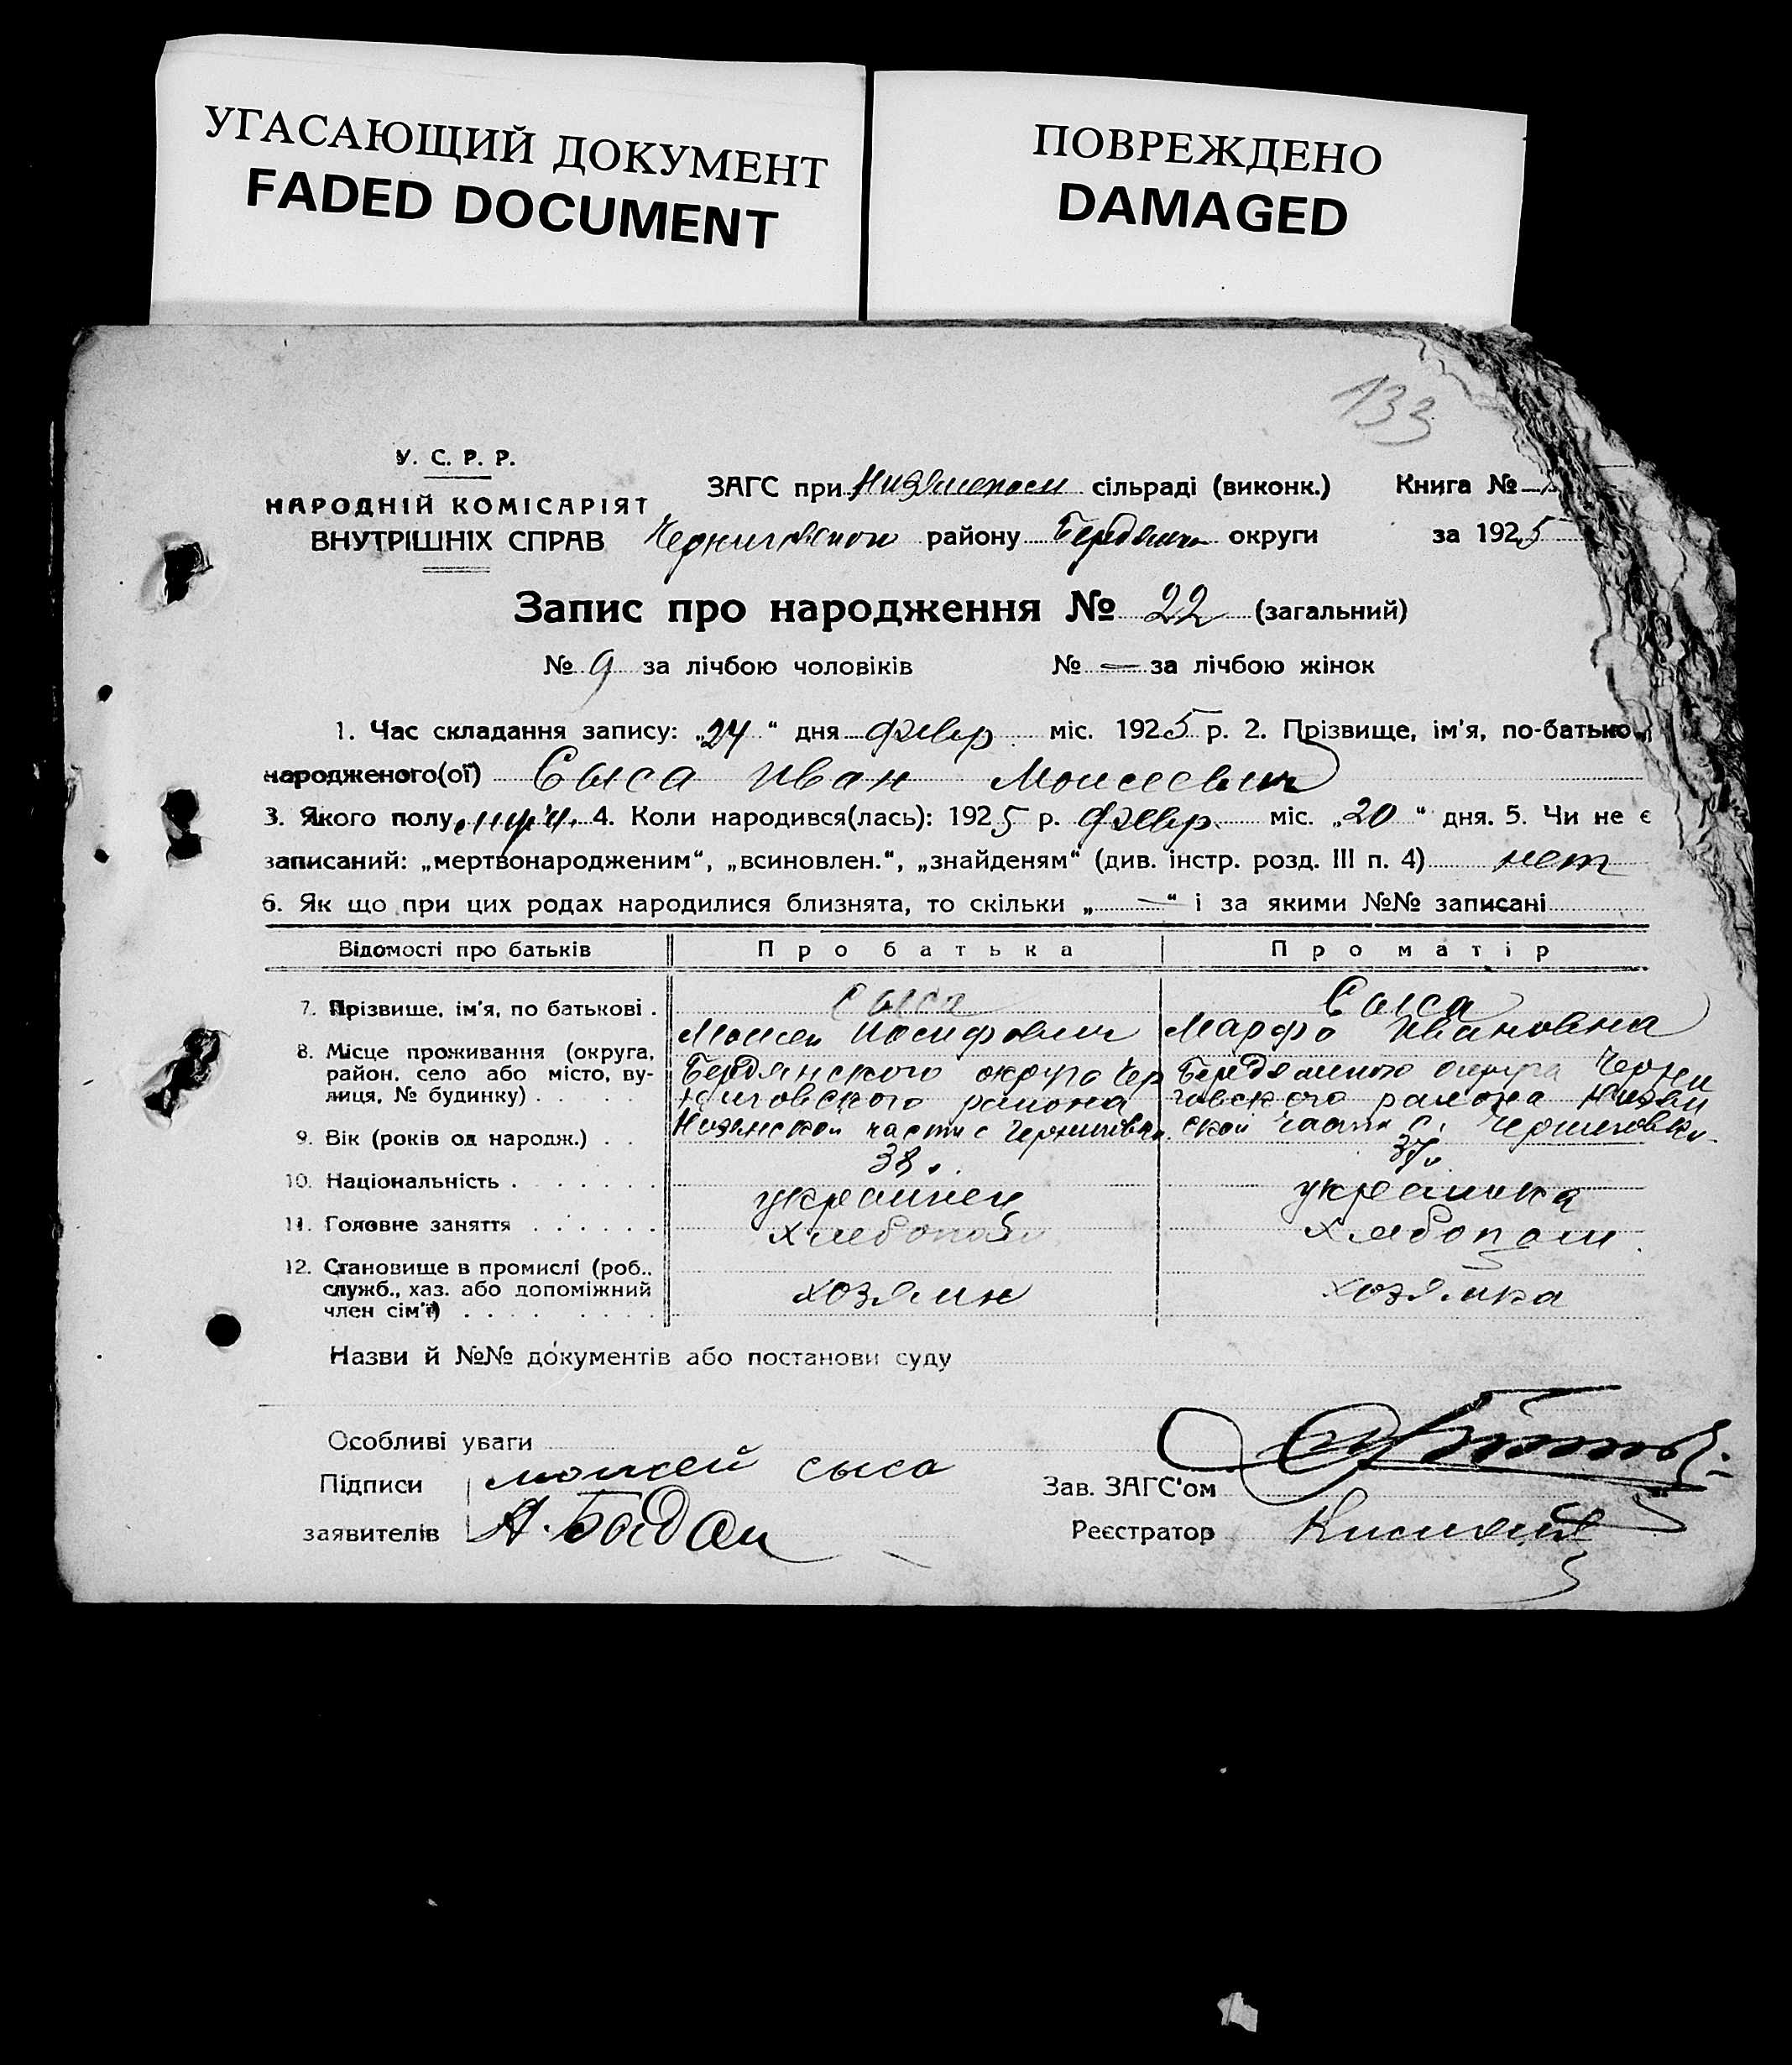 УГАСАЮЩИЙ ДОКУМЕНТ
FADED DOCUMENT
ПОВРЕЖДЕНО
DAMAGED
133
У. С. Р. Р.
НАРОДНІЙ КОМІСАРІЯТ
ВНУТРІШНІХ СПРАВ
ЗАГС при сільраді (виконк.) Книга №
району округи за 1925
Запис про народження № 22 (загальний)
№ 9 за лічбою чоловіків № — за лічбою жінок
1. Час складання запису: „24“ дня февр. міс. 1925 р. 2. Прізвище, ім'я, по-батькові
народженого(ої) Сыса Иван Моисеевич
3. Якого полу муж. 4. Коли народився(лась): 1925 р. февр. міс. „20“ дня. 5. Чи не є
записаний: „мертвонародженим“, „всиновлен.“, „знайденям“ (див. інстр. розд. III п. 4) нет
6. Як що при цих родах народилися близнята, то скільки „—“ і за якими №№ записані
Відомості про батьків Про батька Про матір
7. Прізвище, ім'я, по батькові . Сыса Сыса
Моисей Иосифович Марфа Ивановна
8. Місце проживання (округа, район, село або місто, вулиця, № будинку) . . . . .
Бердянского округа Чер
ниговского района
части с Черниговки
Бердянского округа Черни
говского района
ской части с. Черниговки
9. Вік (років од народж.) . . 38. 37.
10. Національність . . . . . . . украинец украинка
11. Головне заняття . . . . . . хлебопаш хлебопаш.
12. Становище в промислі (роб.,
служб., хаз. або допоміжний
член сім'ї) . . . . . . . . хозяин хозяйка
Назви й №№ документів або постанови суду
Особливі уваги
Підписи моисей сыса
заявителів А. Бадан
Зав. ЗАГС'ом
Реєстратор